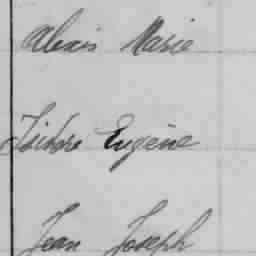 Alexis Marie
Isidore Eugène
Jean Joseph